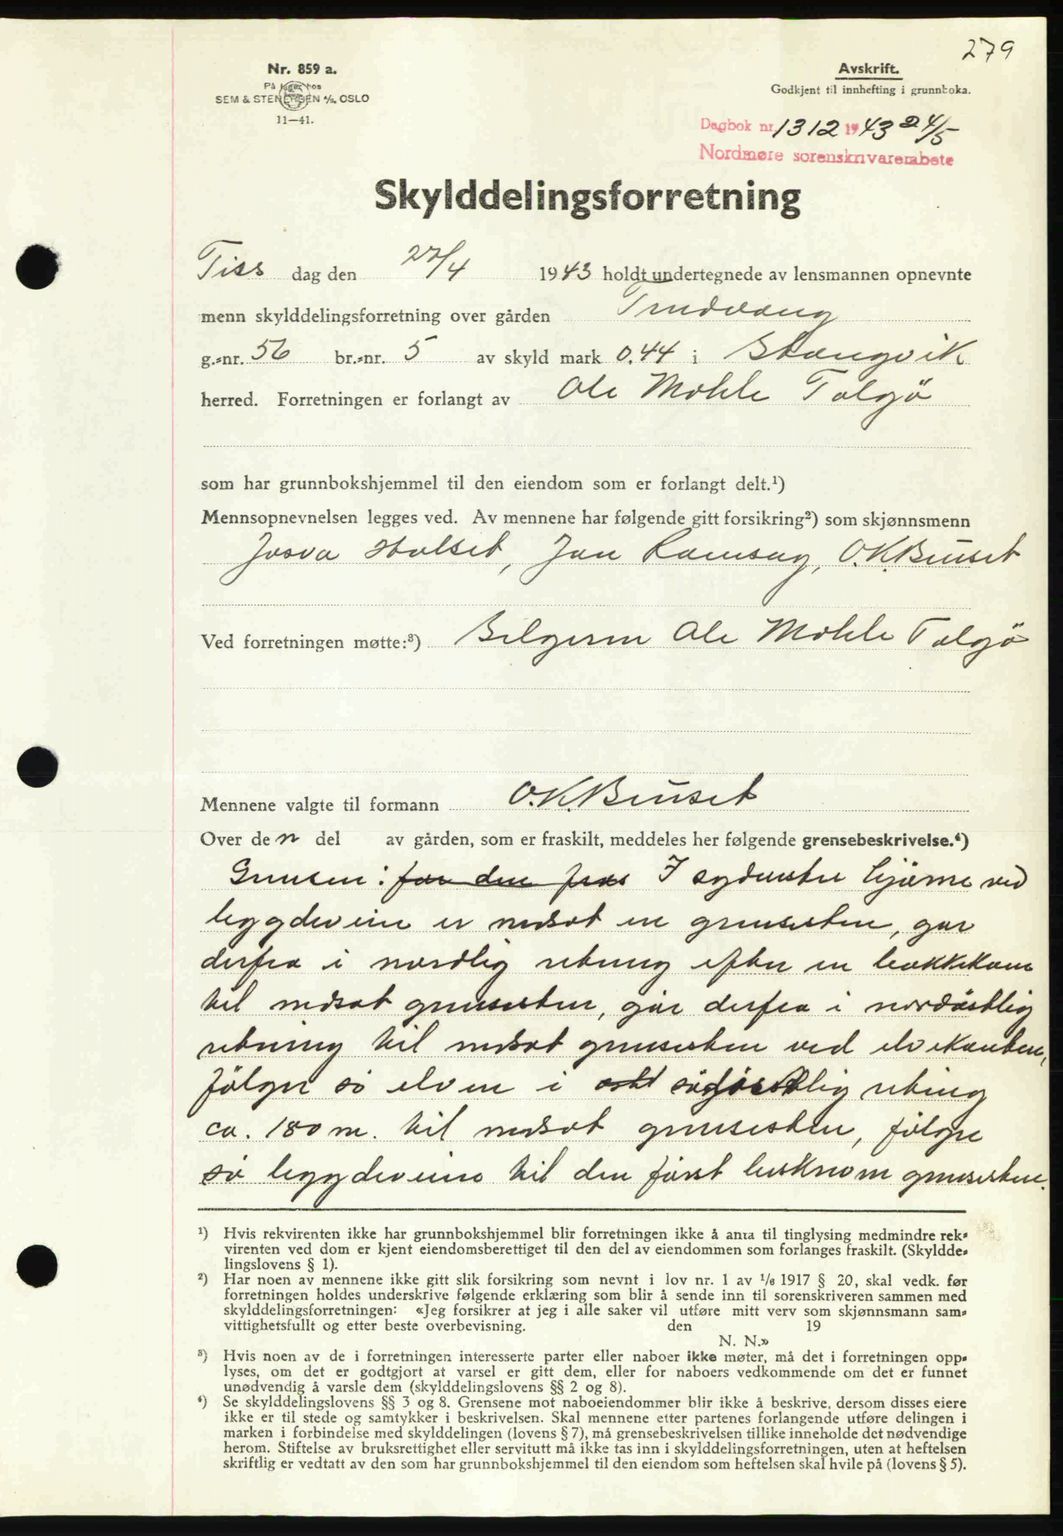 279
Nr. 859 a.
På lager hos
SEM & STENERSEN A/S, OSLO
11—41.
Avskrift.
Godkjent til innhefting i grunnboka.
Dagbok nr. 1312 1943 24/5
Nordmøre sorenskriverembete
Skylddelingsforretning
Tirs dag den 27/4 1943 holdt undertegnede av lensmannen opnevnte
menn skylddelingsforretning over gården Trudvang
g.-nr. 56 br.-nr. 5 av skyld mark 0.44 i Stangvik
herred. Forretningen er forlangt av Ole Mohle Talgö
som har grunnbokshjemmel til den eiendom som er forlangt delt.¹)
Mennsopnevnelsen legges ved. Av mennene har følgende gitt forsikring²) som skjønnsmenn
Josva Halset, Jon Ramsøy, O.K. Bruset
Ved forretningen møtte:³) Selgeren Ole Mohle Talgö
Mennene valgte til formann O.K. Bruset
Over de n del av gården, som er fraskilt, meddeles her følgende grensebeskrivelse.⁴)
Grensen: for den fras I sydvestre hjørne ved
byggdeveien er nedsat en grensesten, går
derfra i nordlig retning efter en bakkekam
til nedsat grensesten, går derfra i nordöstlig
retning til nedsat grensesten ved elvekanten,
fölger så elven i söröstlig retning
ca. 180 m. til nedsat grensesten, fölger
så byggdeveien til den först beskrevne grensesten.
¹) Hvis rekvirenten ikke har grunnbokshjemmel blir forretningen ikke å anta til tinglysing medmindre rek-
virenten ved dom er kjent eiendomsberettiget til den del av eiendommen som forlanges fraskilt. (Skyldde-
lingslovens § 1).
²) Har noen av mennene ikke gitt slik forsikring som nevnt i lov nr. 1 av 1/6 1917 § 20, skal vedk. før
forretningen holdes underskrive følgende erklæring som blir å sende inn til sorenskriveren sammen med
skylddelingsforretningen: «Jeg forsikrer at jeg i alle saker vil utføre mitt verv som skjønnsmann sam-
vittighetsfullt og etter beste overbevisning. den 19
N. N.»
³) Hvis noen av de i forretningen interesserte parter eller naboer ikke møter, må det i forretningen opp-
lyses, om det er godtgjort at varsel er gitt dem, eller for naboers vedkommende om det er funnet
unødvendig å varsle dem (skylddelingslovens §§ 2 og 8).
⁴) Se skylddelingslovens §§ 3 og 8. Grensene mot naboeiendommer blir ikke å beskrive, dersom disses eiere
ikke er til stede og samtykker i beskrivelsen. Skal mennene etter partenes forlangende utføre delingen i
marken i forbindelse med skylddelingen (lovens § 7), må grensebeskrivelsen tillike inneholde det nødvendige
herom. Stiftelse av bruksrettighet eller servitutt må ikke tas inn i skylddelingsforretningen, uten at heftelsen
skriftlig er vedtatt av den som har grunnbokshjemmel til den eiendom som heftelsen skal hvile på (lovens § 5).